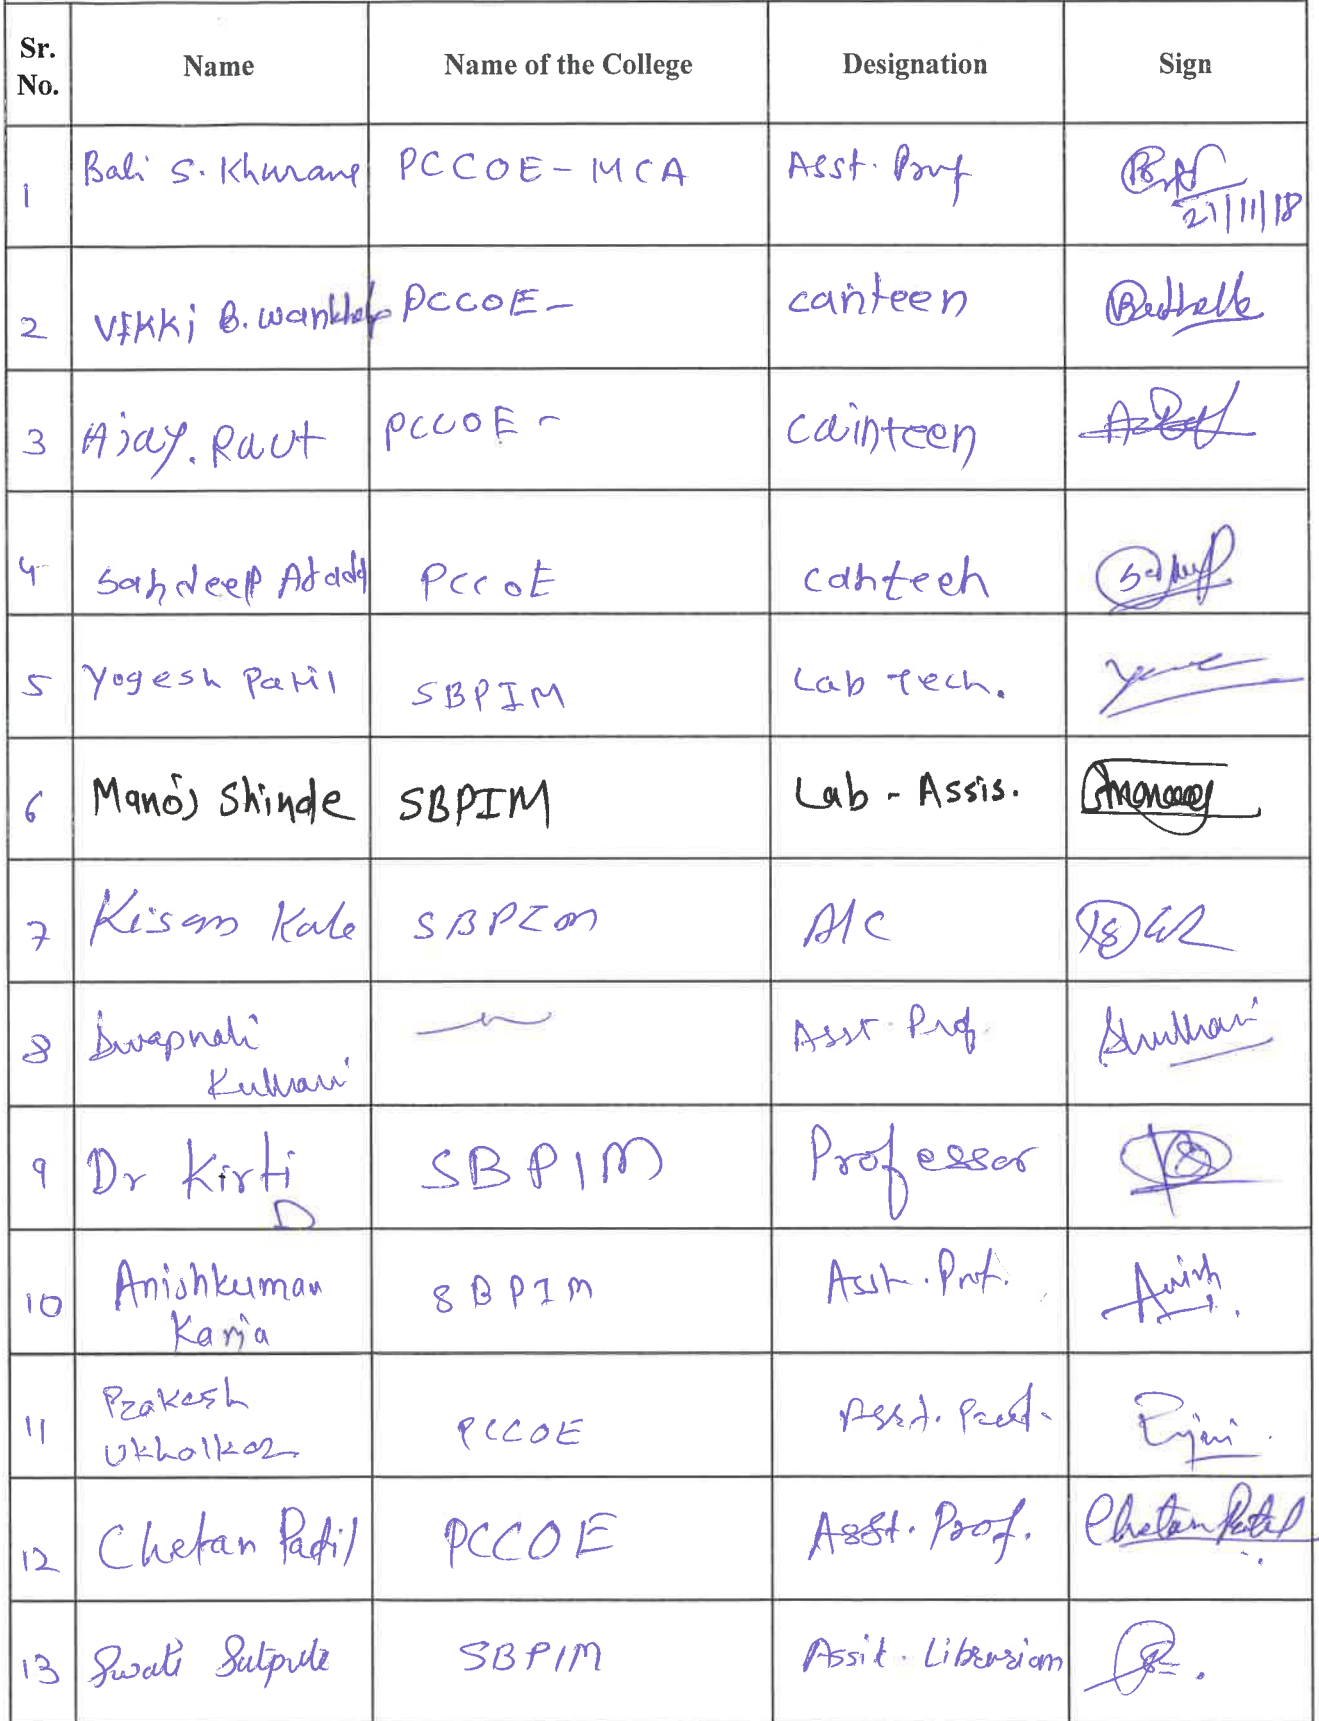 Sr. No. Name Name of the College Designation Sign
1 Bali S. Khurane PCCOE - MCA Asst. Prof 27/11/18
2 Vikki B. PCCOE - canteen
3 Ajay. Raut PCCOE - cainteen
4 Sandeep PCCOE canteen
5 Yogesh Patil SBPIM Lab Tech.
6 Manoj Shinde SBPIM Lab - Assis.
7 Kisan Kale SBPIM A/C
8 Swapnali Asst. Prof
Kulkarni
9 Dr Kirti SBPIM Professor
D
10 Anishkumar SBPIM Asst. Prof. Anish
Karia
11 Prakash PCCOE Asst. Prof.
Ukhalkar
12 Chetan Patil PCCOE Asst. Prof. Chetan Patil
13 Swati Satpute SBPIM Assit. Librarian